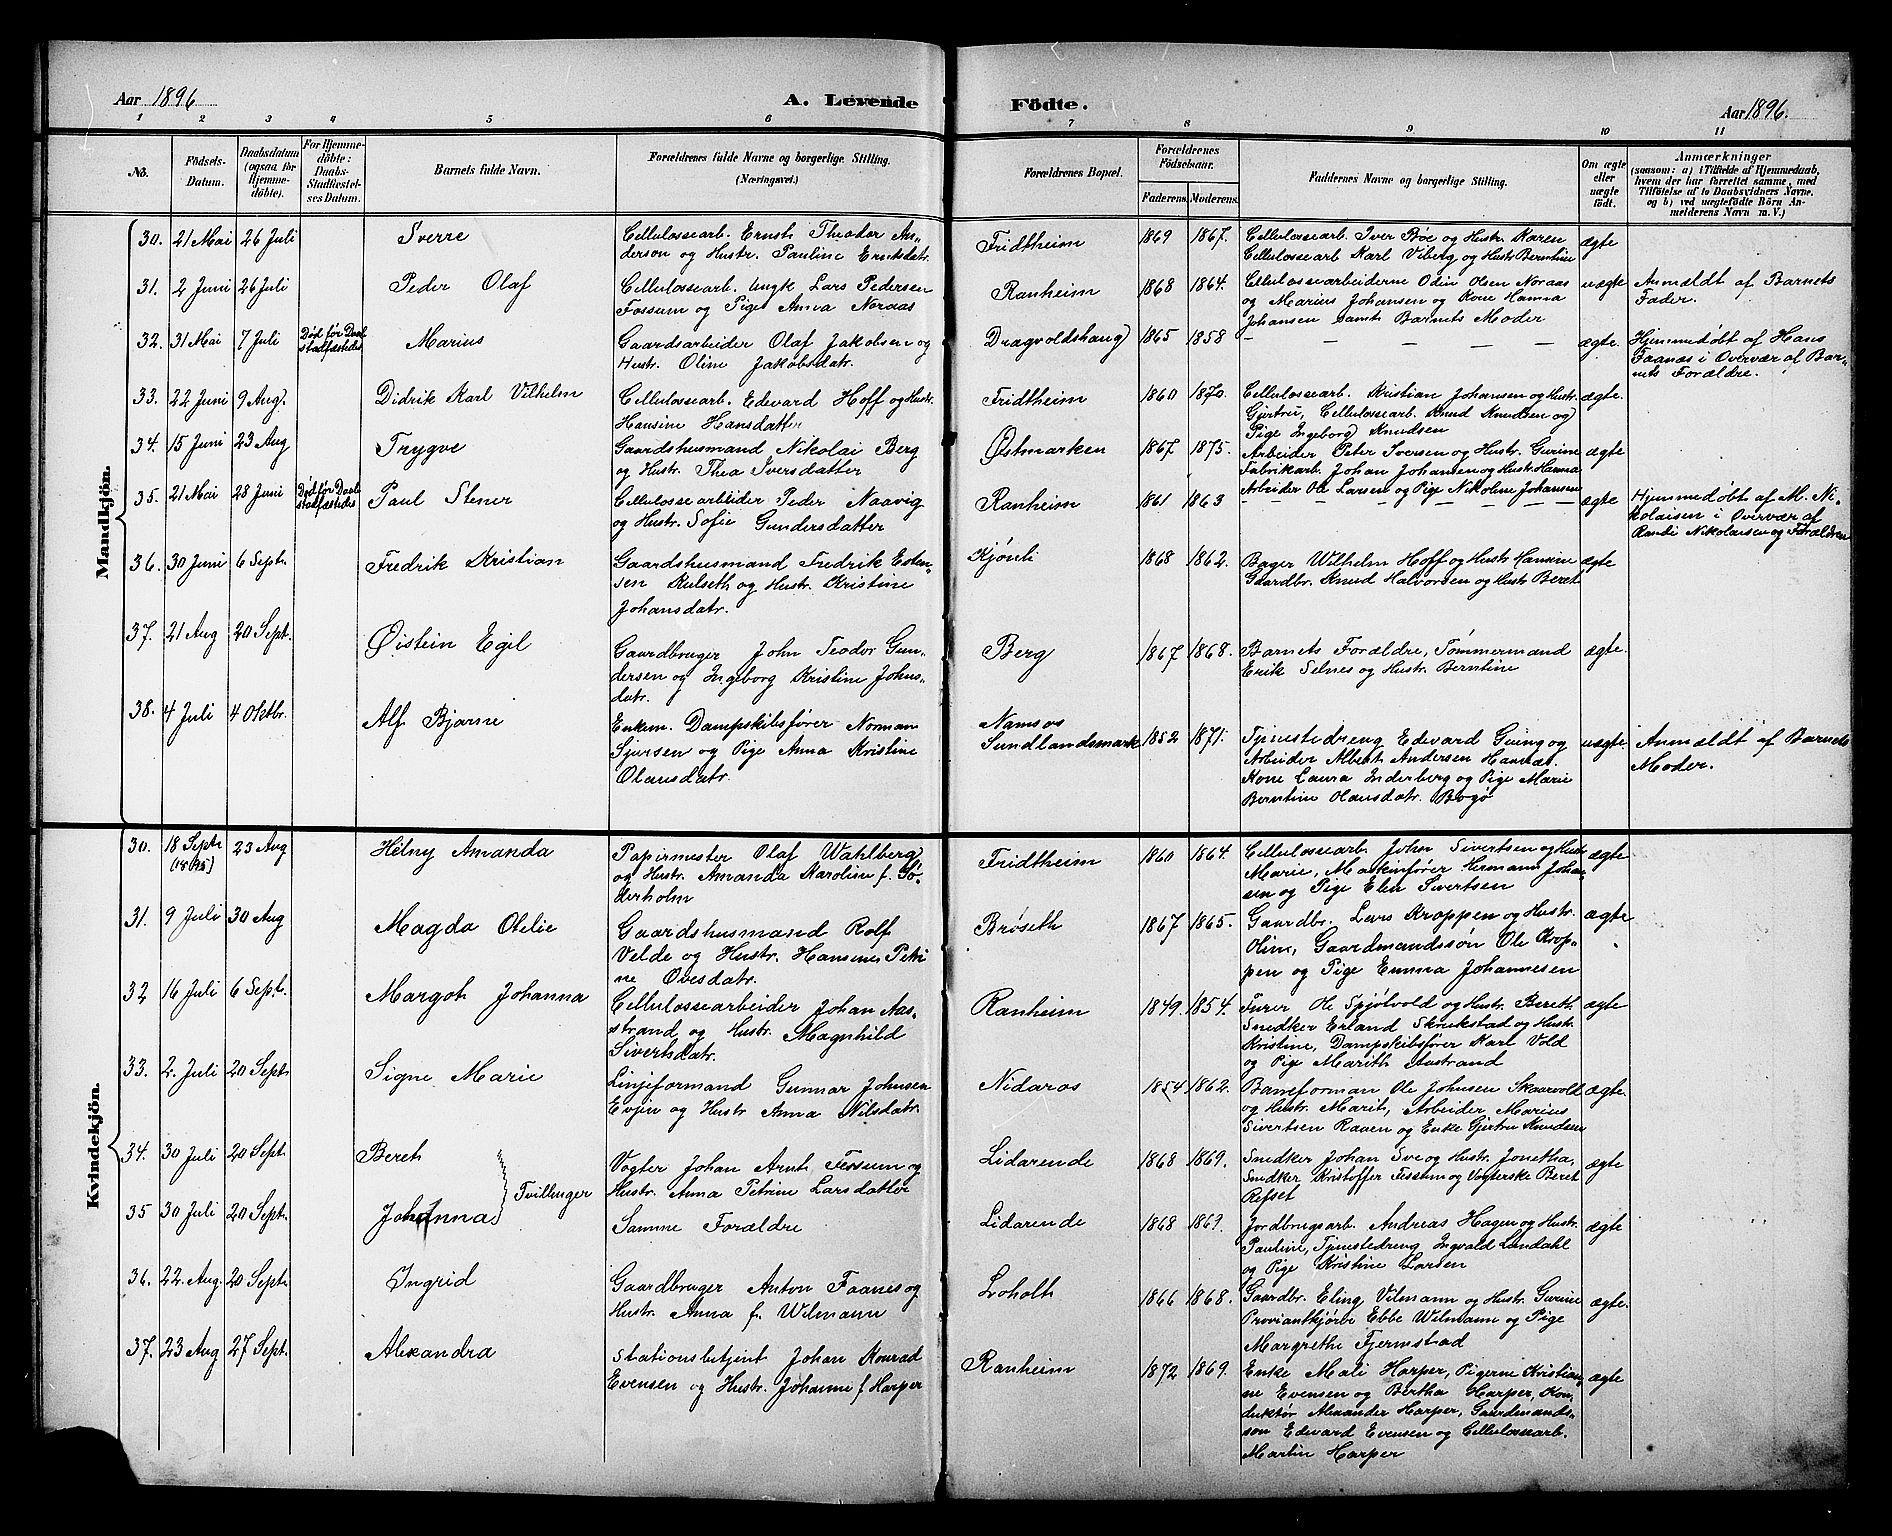 Aar 1896
A. Levende Födte.
Aar 1896.
1 2 3 4 5 6 7 8 9 10 11
No.
Födsels-
Datum.
Daabsdatum
(ogsaa for
Hjemme-
döbte).
For Hjemme-
döbte:
Daabs-
Stadfæstel-
ses Datum.
Barnets fulde Navn.
Forældrenes fulde Navne og borgerlige Stilling.
(Næringsvei.)
Forældrenes Bopæl.
Forældrenes
Födselsaar.
Faderens. Moderens.
Faddernes Navne og borgerlige Stilling.
Om ægte
eller
uægte
födt.
Anmærkninger
(saasom: a) i Tilfælde af Hjemmedaab,
hvem der har forrettet samme, med
Tilföielse af to Daabsvidners Navne,
og b) ved uægtefödte Börn An-
melderens Navn m. V.)
Mandkjön.
30. 21 Mai 26 Juli Sverre
Cellulossearb. Ernst Theodor An-
derson og Hustr. Pauline Eriksdatr.
Fridtheim 1869 1867.
Cellulossearb. Iver Böe og Hustr. Karen
Cellulossearb Karl Viberg og Hustr Berntine
ægte
31. 2 Juni 26 Juli Peder Olaf
Cellulossearb. Ungk Lars Pedersen
Fossum og Pige Anna Noraas
Ranheim 1868 1864.
Cellulossearbeiderne Odin Olsen Noraas
og Marius Johansen og Kone Hanna
Johansen samt Barnets Moder
uægte
Anmeldt af Barnets
Fader.
32. 31 Mai 7 Juli Död för Daab
stadfæstides Marius
Gaardsarbeider Olaf Jakobsen og
Hustr. Oline Jakobsdatr.
Dragvoldshaug 1865 1858
— — — — — —
ægte.
Hjemmedöbt af Hans
Faanes i Overvær af Bar-
nets Forældre.
33. 22 Juni 9 Aug. Didrik Karl Vilhelm
Cellulossearb. Edevard Hoff og Hustr.
Hansine Hansdatter
Fridtheim 1860 1870.
Cellulossearb. Kristian Johansen og Hustr.
Gjertru, Cellulossearb. Knud Knudsen og
Pige Ingeborg Knudsen
ægte.
34. 15 Juni 23 Aug Trygve
Gaardshusmand Nikolai Berg
og Hustr. Thea Iversdatter
Östmarken 1867 1875.
Arbeider Peter Iversen og Hustr. Gurine
Fabrikarb. Johan Johansen og Hustr. Hanna
Arbeider Ole Larsen og Pige Nikoline Johansen
ægte
35. 21 Mai 28 Juni Död för Daab
stadfæstides Paul Stener
Cellulossearbeider Peder Naavig
og Hustr. Sofie Gundersdatter
Ranheim 1861 1863
— — — — — —
ægte
Hjemmedöbt af M. Ni-
kolaisen i Overvær af
Randi Nikolaisen og Forældrene
36. 30 Juni 6 Septr. Fredrik Kristian
Gaardshusmand Fredrik Esten-
sen Rulseth og Hustr. Kristine
Johansdatr.
Kjönli 1868 1862.
Bager Wilhelm Hoff og Hustr Hansine
Gaardbr. Knud Halvorsen og Hustr Beret
ægte
37. 21 Aug 20 Sept. Öistein Egil
Gaardbruger John Teodor Gun-
dersen og Ingeborg Kristine Johns-
datr.
Berg 1867 1868.
Barnets Forældre, Tömmermand
Erik Selnes og Hustr. Berntine
ægte.
38. 4 Juli 4 Oktbr. Alf Bjarne
Enkem. Dampskibsförer Norman
Sjursen og Pige Anna Kristine
Olausdatr.
Namsos
Sundlandsmark 1852 1871.
Tjenestedreng Edevard Guing og
Arbeider Albert Andersen
Kone Laura Inderberg og Pige Marie
Berntine Olausdatr.
uægte.
Anmeldt af Barnets
Moder.
Kvindekjön.
30. 18 Septr
(1895) 23 Aug Helny Amanda
Papirmester Olaf Wahlberg
og Hustr. Amanda Karoline f. Sö-
derholm
Fridtheim 1860 1864.
Cellulossearb. John Sivertsen og Hustr
Marie, Maskinförer Hermann Johan-
sen og Pige Elen Sivertsen
ægte
31. 9 Juli 30 Aug Magda Otelie
Gaardshusmand Rolf
Velde og Hustr. Hansine Petri
ne Ovesdatr.
Bröseth 1867 1865.
Gaardbr. Lars Kroppen og Hustr.
Oline, Gaardmandssön Ole Krop-
pen og Pige Emma Johannesen
ægte
32 16 Juli 6 Septr. Margoth Johanna
Cellulossearbeider Johan Aas-
strand og Hustr. Magnhild
Sivertsdatr.
Ranheim 1849 1854.
Furer Ole Spjötvold og Hustr. Bereth
Snedker Erland Skrukstad og Hustr.
Kristine, Dampskibsförer Karl Vold
og Pige Marith Austrand
ægte
33. 2. Juli 20 Sept. Signe Marie
Linjeformand Gunnar Johnsen
Evjen og Hustr Anna Nilsdatr.
Nidaros 1854 1862.
Baneforman Ole Johnsen Skaarvold
og Hustr. Marit, Arbeider Marius
Sivertsen Raaen og Enke Gjertru Knudsen
ægte.
34. 30 Juli 20 Sept. Bereth
Vogter Johan Arnt Fossum og
Hustr. Anna Petrine Larsdatter
Lidarende 1868 1869.
Snedker Johan Sve og Hustr. Jonetha,
Snedker Kristoffer Fossum og Vogterske Beret
Refset
ægte
Tvillinger
35 30 Juli 20 Sept. Johanna
Samme Forældre
Lidarende 1868 1869.
Jordbrugsarb. Andreas Hagen og Hustr.
Pauline, Tjenestedreng Ingvald Lundahl
og Pige Kristine Larsen
ægte
36. 22. Aug. 20 Sept. Ingrid
Gaardbruger Anton Faanes og
Hustr. Anna f. Wilmann
Loholt 1866 1868.
Gaardbr. Eling Vilmann og Hustr. Gurine
Proviantkjörer Ebbe Wilmann og Pige
Margrethe Fjermstad
ægte.
37. 23 Aug 27 Sept. Alexandra
Stationsbetjent Johan Konrad
Evensen og Hustr. Johanne f Harper
Ranheim 1872 1869.
Enke Mali Harper, Pigerne Kristian-
ne Evensen og Bertha Harper, Kon-
duktör Alexander Harper, Gaardmands-
sön Edevard Evensen og Cellulossearb.
Martin Harper
ægte